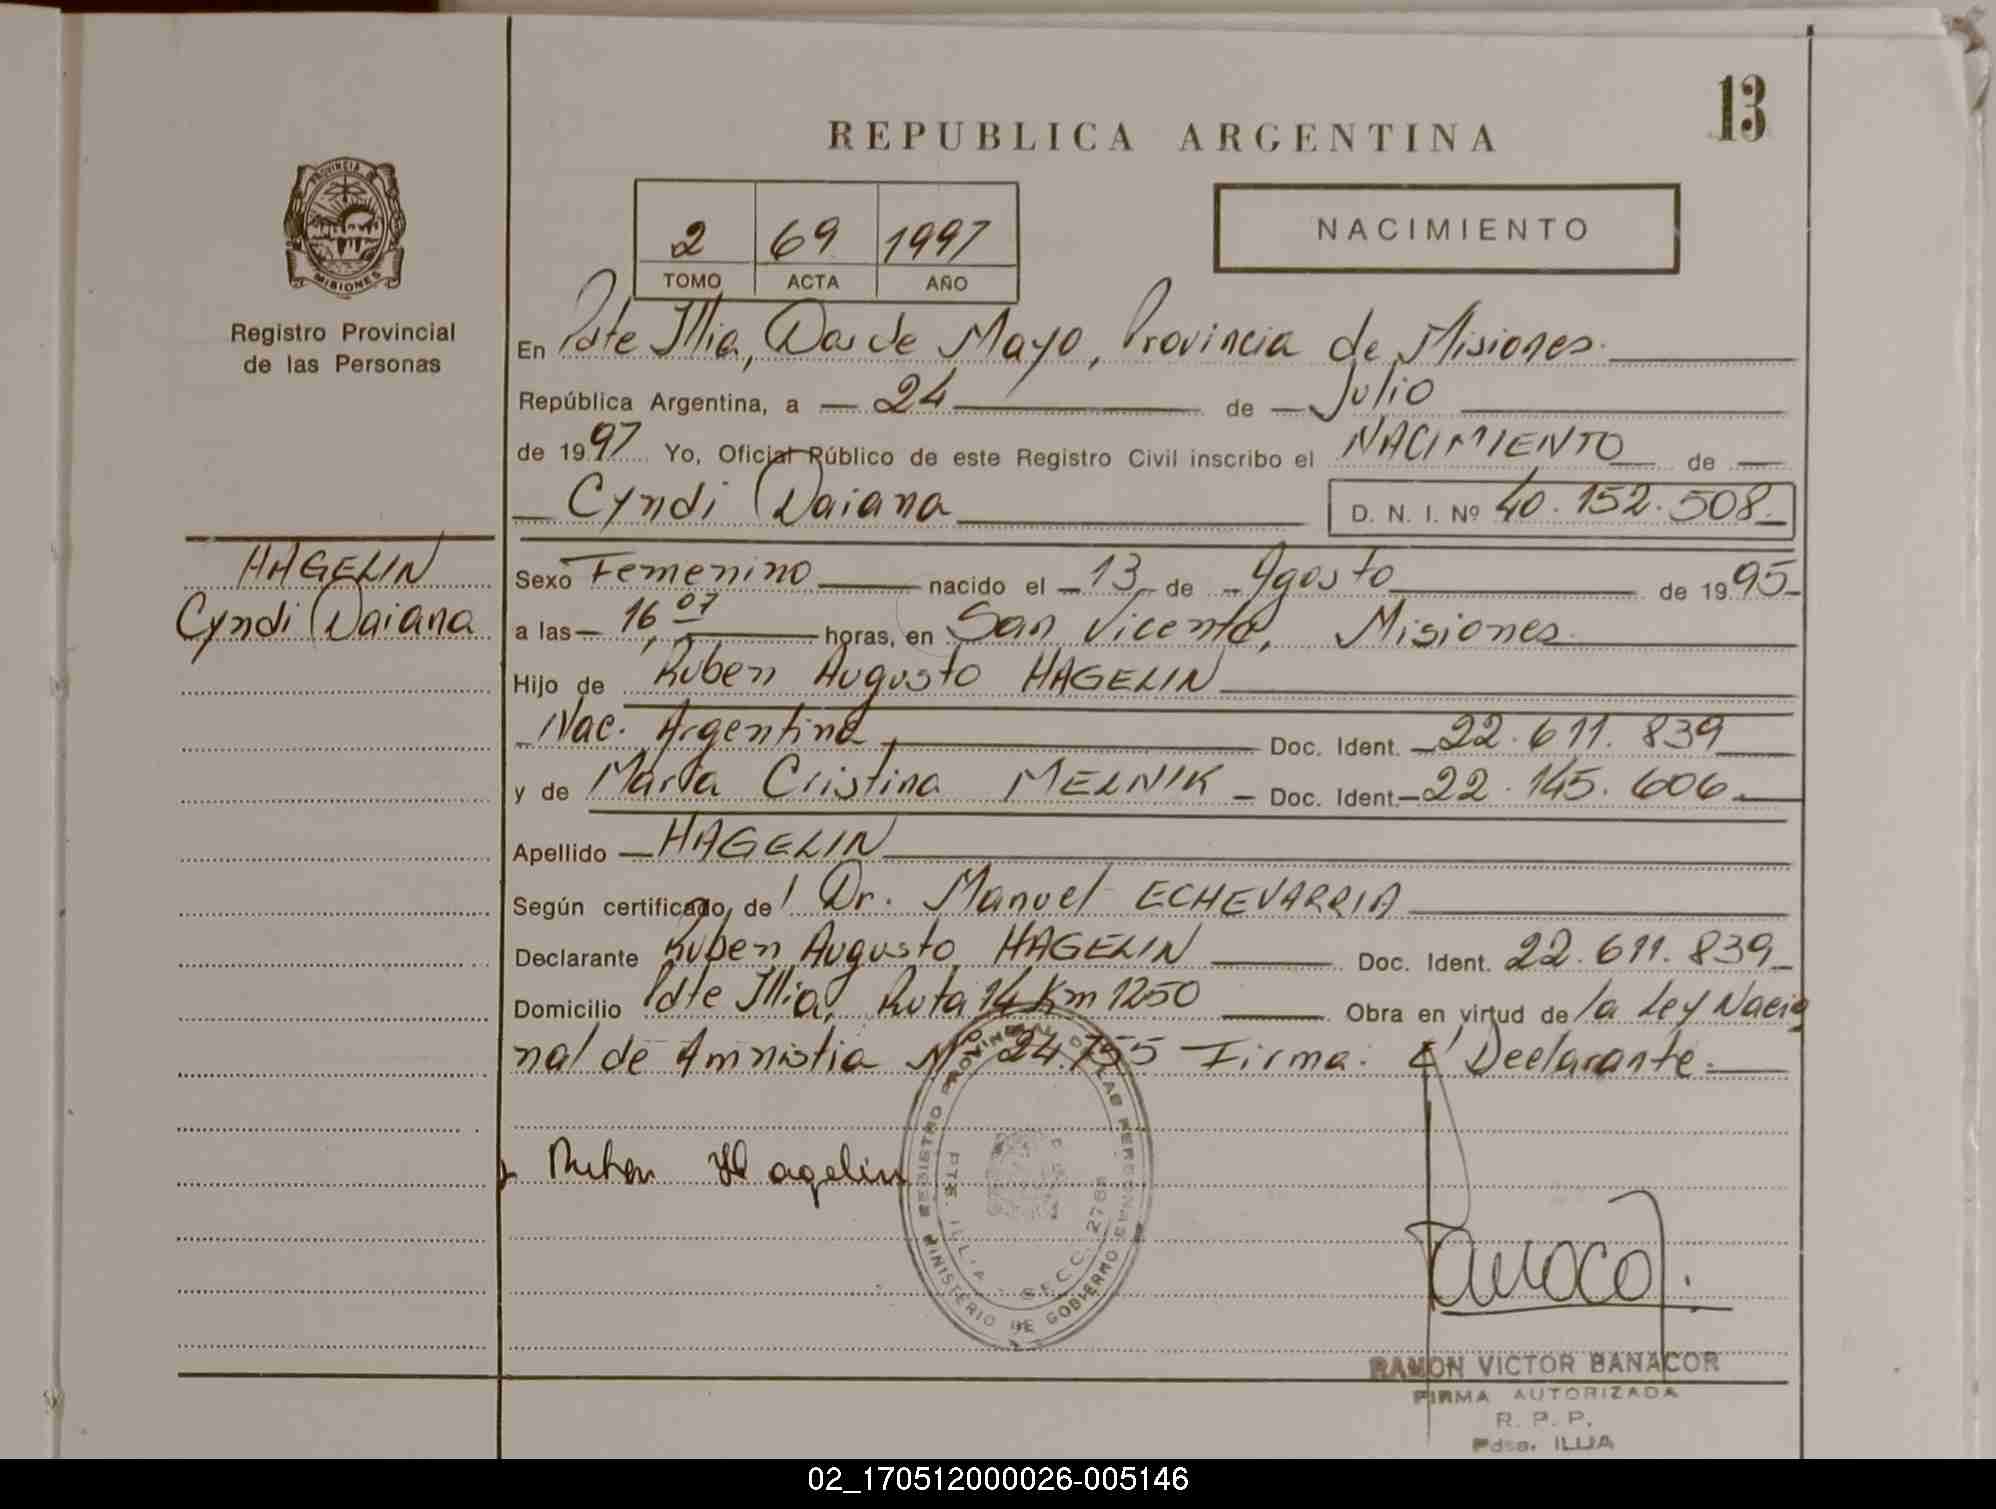 13
REPUBLICA ARGENTINA
PROVINCIA DE
MISIONES
Registro Provincial
de las Personas
2 69 1997
TOMO ACTA AÑO
NACIMIENTO
En Pdte Illia, Dos de Mayo, Provincia de Misiones.
República Argentina, a 24 de Julio
de 1997 Yo, Oficial Público de este Registro Civil inscribo el NACIMIENTO de
Cyndi Daiana D. N. I. Nº 40.152.508
HAGELIN
Cyndi Daiana
Sexo Femenino nacido el 13 de Agosto de 1995
a las 16,07 horas, en San Vicente, Misiones.
Hijo de Ruben Augusto HAGELIN
Nac. Argentina, Doc. Ident. 22.611.839
y de María Cristina MELNIK Doc. Ident. 22.145.606
Apellido HAGELIN
Según certificado, de Dr. Manuel ECHEVARRIA
Declarante Ruben Augusto HAGELIN Doc. Ident. 22.611.839
Domicilio Pdte Illia, Ruta 14 Km 1250 Obra en virtud de la Ley Nacio
nal de Amnistia Nº 24.755 Firma: el Declarante.
Ruben Hagelin
REGISTRO PROVINCIAL DE LAS PERSONAS
MINISTERIO DE GOBIERNO
PTE. ILLIA SECC. 278
RAMON VICTOR BANACOR
FIRMA AUTORIZADA
R. P. P.
Pdte. ILLIA
02_170512000026-005146